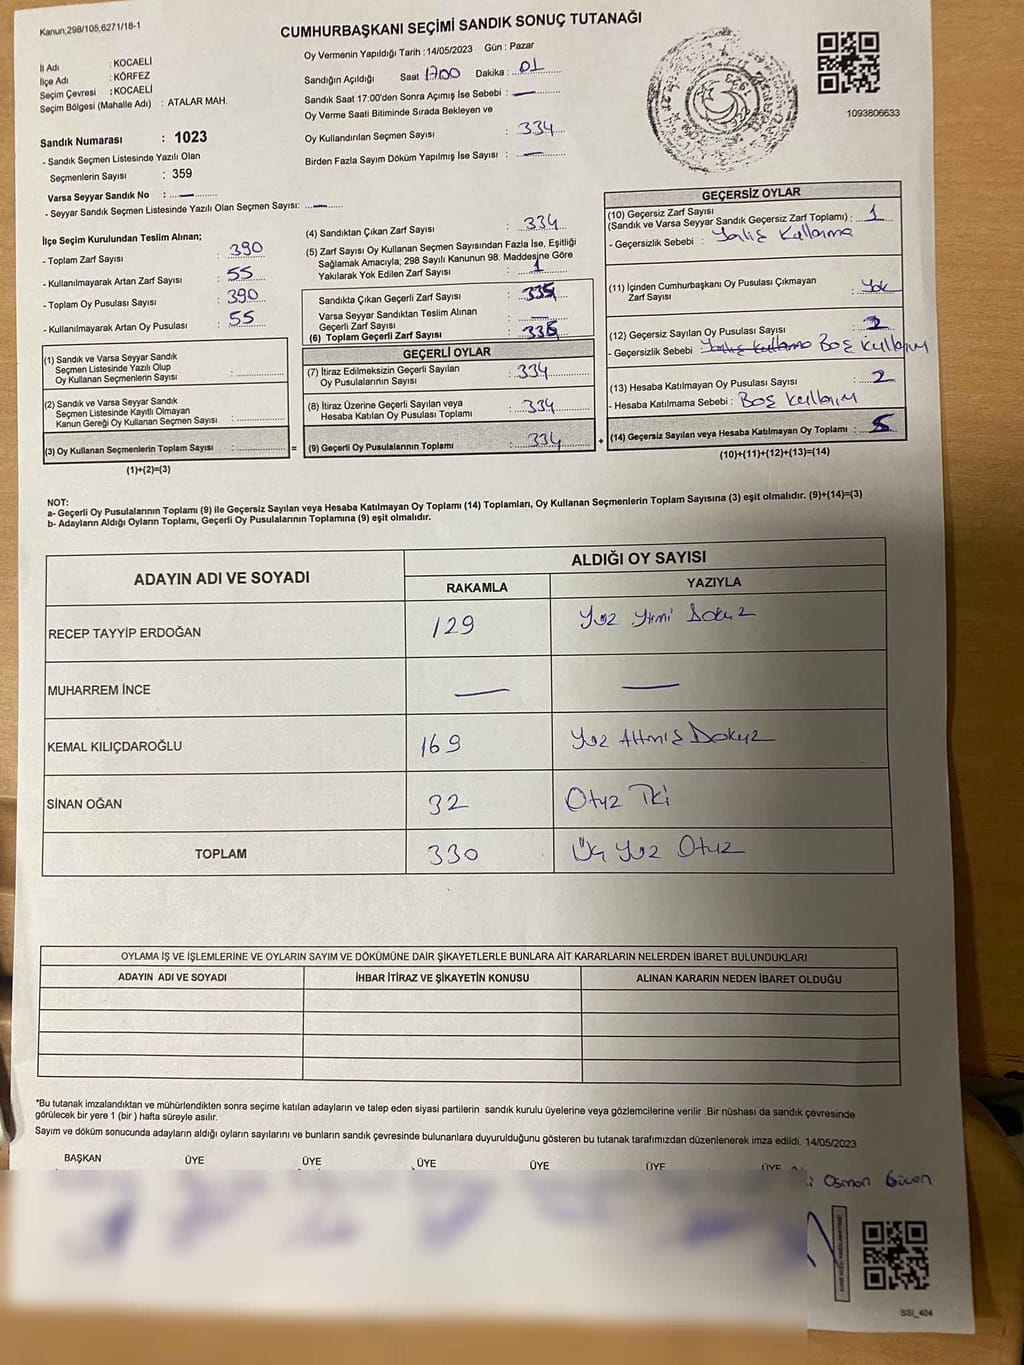 Kanun,298/105,6271/18-1
CUMHURBAŞKANI SEÇİMİ SANDIK SONUÇ TUTANAĞI
İl Adı : KOCAELİ
İlçe Adı : KÖRFEZ
Seçim Çevresi : KOCAELİ
Seçim Bölgesi (Mahalle Adı) : ATALAR MAH.
Sandık Numarası : 1023
- Sandık Seçmen Listesinde Yazılı Olan
Seçmenlerin Sayısı : 359
Varsa Seyyar Sandık No :
- Seyyar Sandık Seçmen Listesinde Yazılı Olan Seçmen Sayısı:
Oy Vermenin Yapıldığı Tarih : 14/05/2023 Gün : Pazar
Sandığın Açıldığı Saat 1700 Dakika : 01
Sandık Saat 17:00'den Sonra Açımış İse Sebebi :
Oy Verme Saati Bitiminde Sırada Bekleyen ve
Oy Kullandırılan Seçmen Sayısı : 334
Birden Fazla Sayım Döküm Yapılmış İse Sayısı :
1093806633
İlçe Seçim Kurulundan Teslim Alınan;
- Toplam Zarf Sayısı : 390
- Kullanılmayarak Artan Zarf Sayısı : 55
- Toplam Oy Pusulası Sayısı : 390
- Kullanılmayarak Artan Oy Pusulası : 55
(1) Sandık ve Varsa Seyyar Sandık
Seçmen Listesinde Yazılı Olup
Oy Kullanan Seçmenlerin Sayısı :
(2) Sandık ve Varsa Seyyar Sandık
Seçmen Listesinde Kayıtlı Olmayan
Kanun Gereği Oy Kullanan Seçmen Sayısı :
(3) Oy Kullanan Seçmenlerin Toplam Sayısı :
(1)+(2)=(3)
=
(4) Sandıktan Çıkan Zarf Sayısı : 334
(5) Zarf Sayısı Oy Kullanan Seçmen Sayısından Fazla İse, Eşitliği
Sağlamak Amacıyla; 298 Sayılı Kanunun 98. Maddesine Göre
Yakılarak Yok Edilen Zarf Sayısı : 1
Sandıkta Çıkan Geçerli Zarf Sayısı : 335
Varsa Seyyar Sandıktan Teslim Alınan
Geçerli Zarf Sayısı :
(6) Toplam Geçerli Zarf Sayısı : 335
GEÇERLİ OYLAR
(7) İtiraz Edilmeksizin Geçerli Sayılan
Oy Pusulalarının Sayısı : 334
(8) İtiraz Üzerine Geçerli Sayılan veya
Hesaba Katılan Oy Pusulası Toplamı : 334
(9) Geçerli Oy Pusulalarının Toplamı : 334
+
GEÇERSİZ OYLAR
(10) Geçersiz Zarf Sayısı
(Sandık ve Varsa Seyyar Sandık Geçersiz Zarf Toplamı) : 1
- Geçersizlik Sebebi : Yanlış Kullanma
(11) İçinden Cumhurbaşkanı Oy Pusulası Çıkmayan
Zarf Sayısı : Yok
(12) Geçersiz Sayılan Oy Pusulası Sayısı : 2
- Geçersizlik Sebebi : Yanlış Kullanma Boş Kullanım
(13) Hesaba Katılmayan Oy Pusulası Sayısı : 2
- Hesaba Katılmama Sebebi : Boş Kullanım
(14) Geçersiz Sayılan veya Hesaba Katılmayan Oy Toplamı : 5
(10)+(11)+(12)+(13)=(14)
NOT:
a- Geçerli Oy Pusulalarının Toplamı (9) ile Geçersiz Sayılan veya Hesaba Katılmayan Oy Toplamı (14) Toplamları, Oy Kullanan Seçmenlerin Toplam Sayısına (3) eşit olmalıdır. (9)+(14)=(3)
b- Adayların Aldığı Oyların Toplamı, Geçerli Oy Pusulalarının Toplamına (9) eşit olmalıdır.
ADAYIN ADI VE SOYADI
ALDIĞI OY SAYISI
RAKAMLA YAZIYLA
RECEP TAYYİP ERDOĞAN 129 Yüz Yirmi Dokuz
MUHARREM İNCE
KEMAL KILIÇDAROĞLU 169 Yüz Altmış Dokuz
SİNAN OĞAN 32 Otuz İki
TOPLAM 330 Üç Yüz Otuz
OYLAMA İŞ VE İŞLEMLERİNE VE OYLARIN SAYIM VE DÖKÜMÜNE DAİR ŞİKAYETLERLE BUNLARA AİT KARARLARIN NELERDEN İBARET BULUNDUKLARI
ADAYIN ADI VE SOYADI İHBAR İTİRAZ VE ŞİKAYETİN KONUSU ALINAN KARARIN NEDEN İBARET OLDUĞU
*Bu tutanak imzalandıktan ve mühürlendikten sonra seçime katılan adayların ve talep eden siyasi partilerin sandık kurulu üyelerine veya gözlemcilerine verilir .Bir nüshası da sandık çevresinde
görülecek bir yere 1 (bir ) hafta süreyle asılır.
Sayım ve döküm sonucunda adayların aldığı oyların sayılarını ve bunların sandık çevresinde bulunanlara duyurulduğunu gösteren bu tutanak tarafımızdan düzenlenerek imza edildi. 14/05/2023
BAŞKAN ÜYE ÜYE ÜYE ÜYE ÜYE ÜYE
Osman Güven
SSI_404